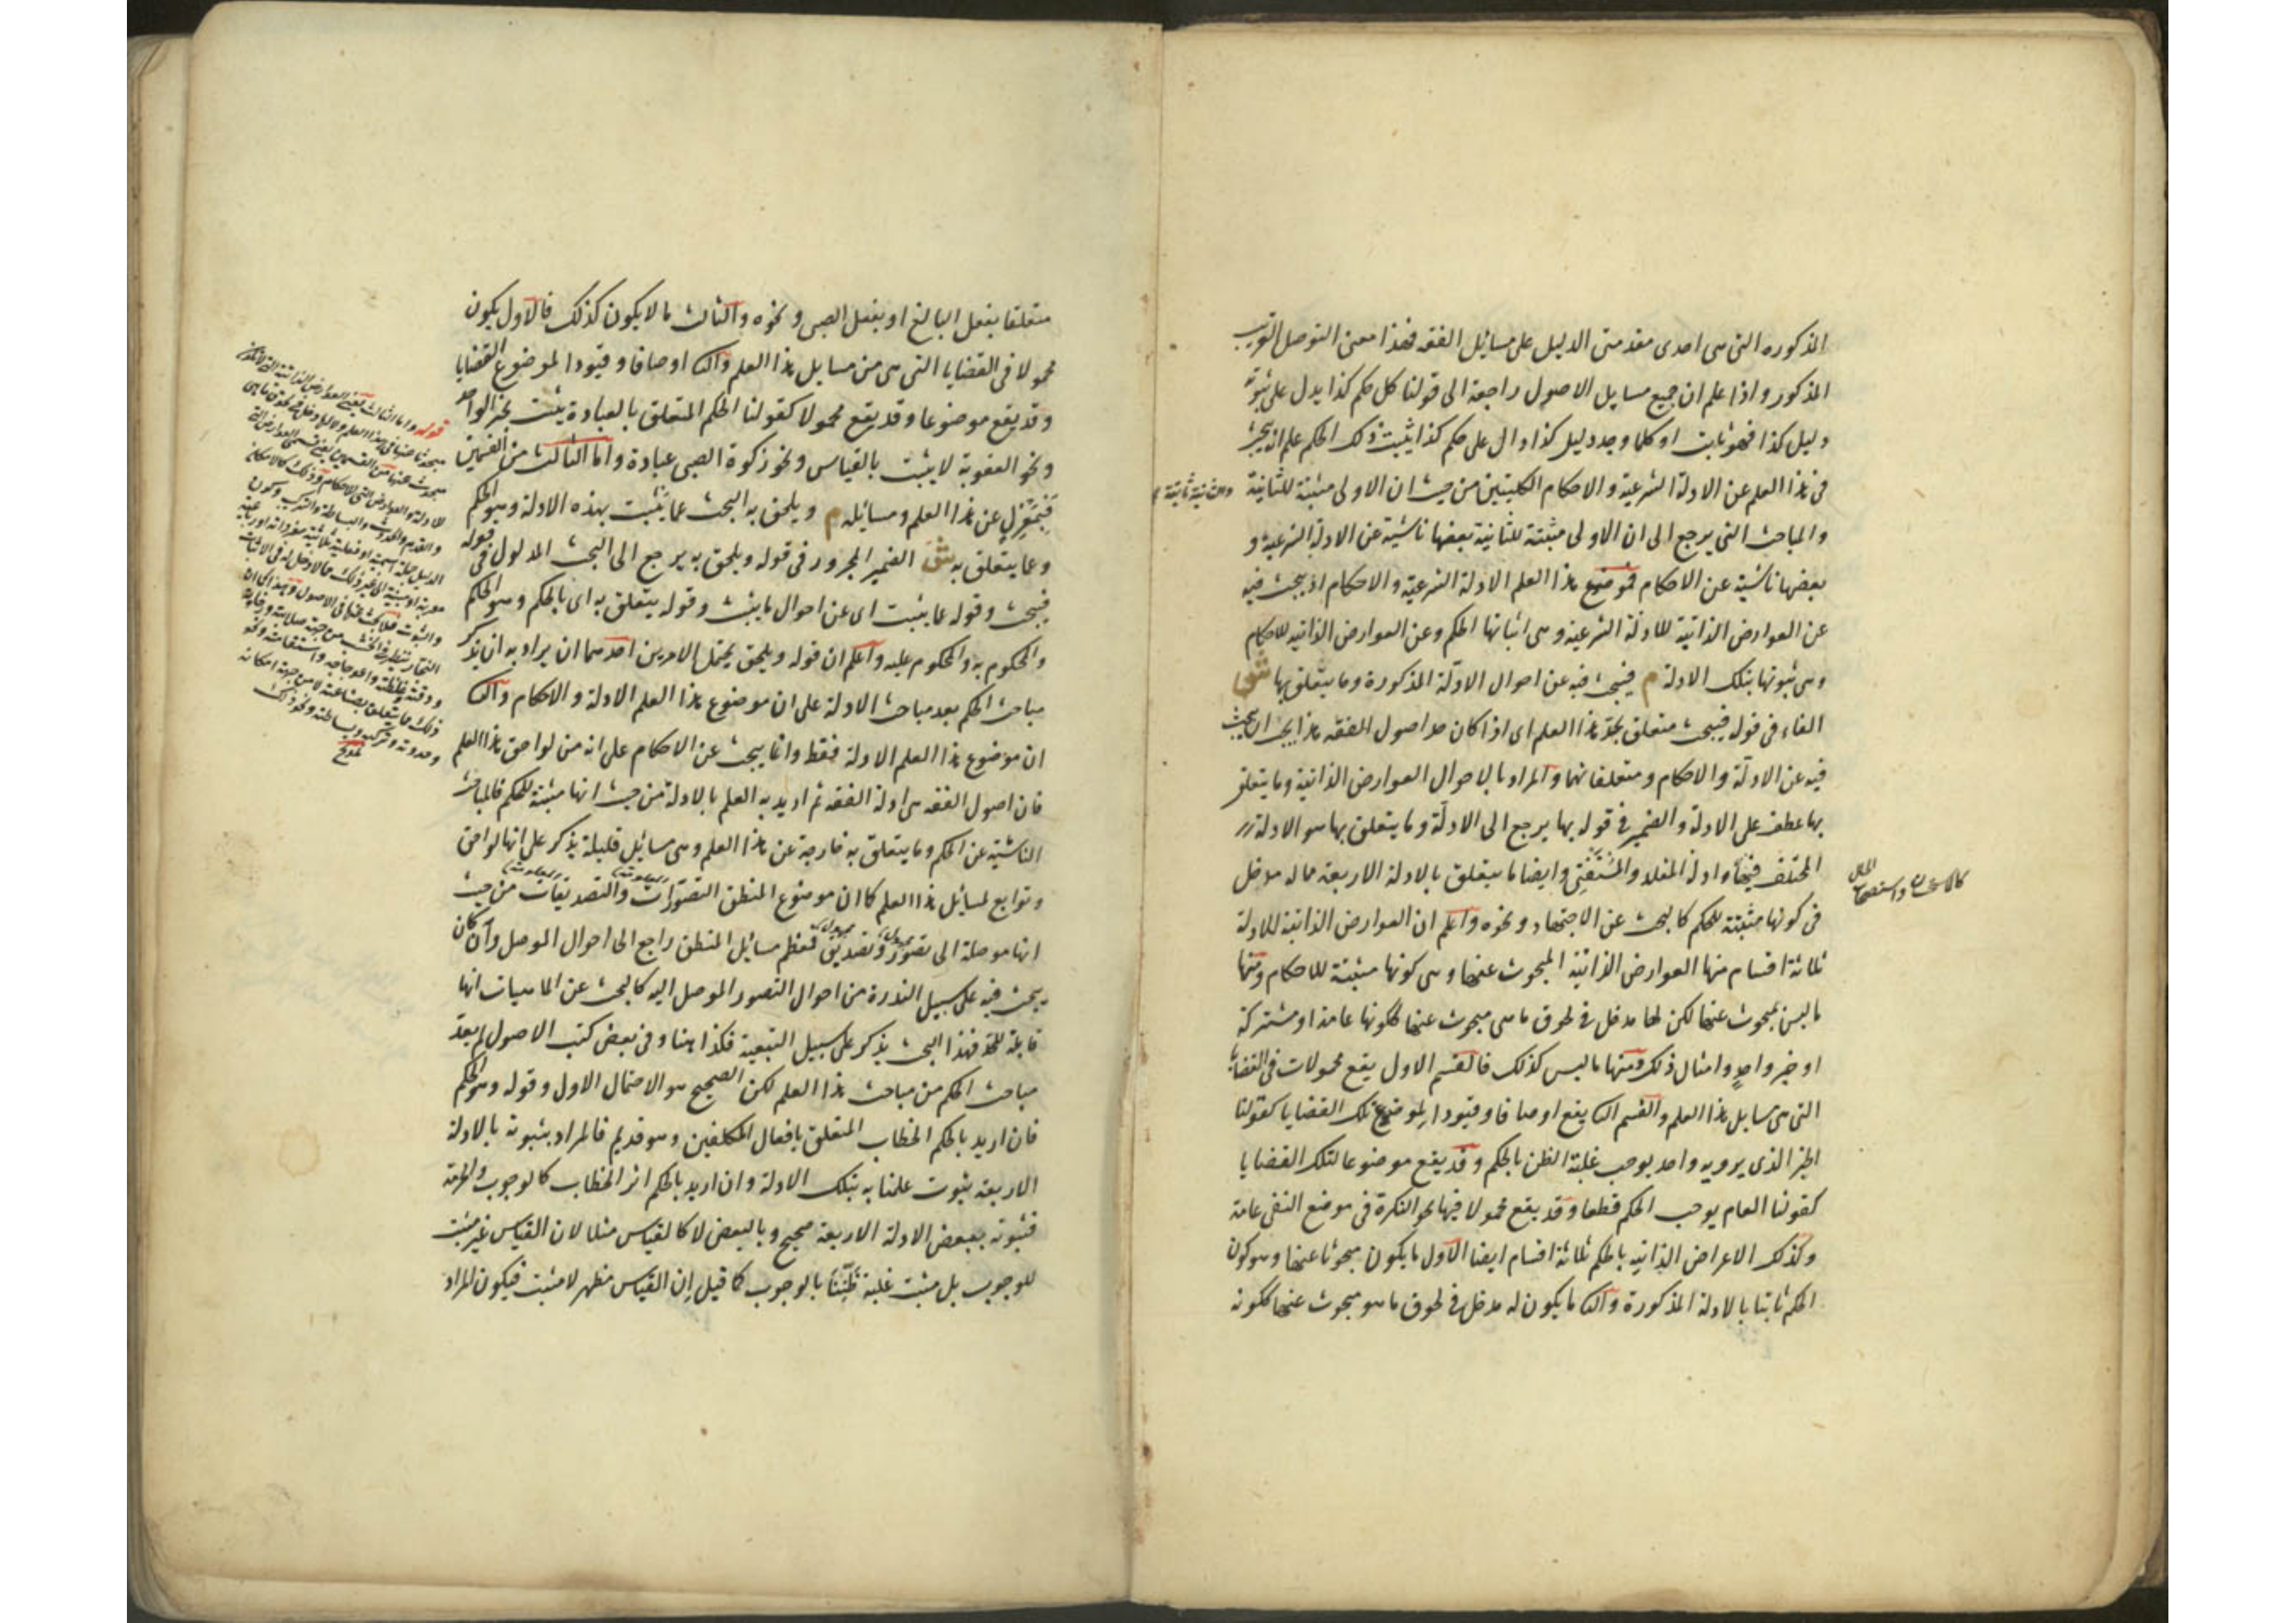 المذكوره التى هى احدى مقدمتى الدليل على مسائل الفقه فهذا معنى التوصل القريب
المذكور واذا علم ان جميع مسايل الاصول راجعة الى قولنا كل حكم كذا يدل على ثبوته
دليل كذا فهو ثابت او كلما وجد دليل كذا دال على حكم كذا يثبت ذلك الحكم علم انه يبحث
فى هذا العلم عن الادلة الشرعية والاحكام الكليتين من حيث ان الاولى مثبتة للثانية
والثانية ثابتة
والمباحث التى يرجع الى ان الاولى مثبتة للثانية بعضها ناشية عن الادلة الشرعية و
بعضها ناشية عن الاحكام فموضوع هذا العلم الادلة الشرعية والاحكام اذ يبحث فيه
عن العوارض الذاتية للادلة الشرعية وهى اثباتها الحكم وعن العوارض الذاتيه للاحكام
وهى ثبوتها بتلك الادلة م فيبحث فيه عن احوال الادلة المذكورة وما يتعلق بها ش
الفاء فى قوله فيبحث متعلق بحد هذا العلم اى اذا كان حد اصول الفقه هذا يجب ان يبحث
فيه عن الادلة والاحكام ومتعلقاتهما والمراد بالاحوال العوارض الذاتية وما يتعلق
بها عطف على الادلة والضمير فى قوله بها يرجع الى الادلة وما يتعلق بها هو الادلة
المختلف فيها وادلة المقلد والمستفتى وايضا ما يتعلق بالادلة الاربعة مما له مدخل
فى كونها مثبتة للحكم كالبحث عن الاجتهاد ونحوه واعلم ان العوارض الذاتية للادلة
ثلاثة اقسام منها العوارض الذاتية المبحوث عنها وهى كونها مثبتة للاحكام ومنها
ما ليس بمبحوث عنها لكن لها مدخل فى لحوق ما هى مبحوث عنها ككونها عامة او مشتركة
او خبر واحد وامثال ذلك ومنها ما ليس كذلك فالقسم الاول يقع محمولات فى القضايا
التى هى مسايل هذا العلم والقسم الثا يقع اوصافا وقيودا لموضوع تلك القضايا كقولنا
الخبر الذى يرويه واحد يوجب غلبة الظن بالحكم وقد يقع موضوعا لتلك القضايا
كقولنا العام يوجب الحكم قطعا وقد يقع محمولا فيها نحو النكرة فى موضع النفى عامة
وكذلك الاعراض الذاتيه بالحكم ثلاثة اقسام ايضا الاول ما يكون مبحوثا عنها وهو كون
الحكم ثابتا بالادلة المذكورة والثا ما يكون له مدخل فى لحوق ما هو مبحوث عنها ككونه
متعلقا بفعل البالغ او بفعل الصبى ونحوه والثالث ما لا يكون كذلك فالاول يكون
محمولا فى القضايا التى هى من مسايل هذا العلم والثا اوصافا وقيودا لموضوع القضايا
وقد يقع موضوعا وقد يقع محمولا كقولنا الحكم المتعلق بالعبادة يثبت بخبر الواحد
ونحو العقوبة لا يثبت بالقياس ونحو زكوة الصبى عبادة واما الثالث من القسمين
فبمعزل عن هذا العلم ومسائله م ويلحق به البحث عما يثبت بهذه الادلة وهو الحكم
وعما يتعلق به ش الضمير المجرور فى قوله ويلحق به يرجع الى البحث المدلول فى قوله
فيبحث وقوله عما يثبت اى عن احوال ما يثبت وقوله يتعلق به اى بالحكم وهو الحكم
والمحكوم به والمحكوم عليه واعلم ان قوله ويلحق يحتمل الامرين احدهما ان يراد به ان يذكر
مباحث الحكم بعد مباحث الادلة على ان موضوع هذا العلم الادلة والاحكام والثا
ان موضوع هذا العلم الادلة فقط وانما يبحث عن الاحكام على انه من لواحق هذا العلم
فان اصول الفقه هى ادلة الفقه ثم اريد به العلم بالادلة من حيث انها مثبتة للحكم فالمباحث
الناشية عن الحكم وما يتعلق به خارجة عن هذا العلم وهى مسائل قليلة يذكر على انها لواحق
وتوابع لمسائل هذا العلم كما ان موضوع المنطق التصورات والتصديقات من حيث
انها موصلة الى تصور وتصديق فمعظم مسائل المنطق راجع الى احوال الموصل وان كان
يبحث فيه على سبيل الندرة من احوال التصور الموصل اليه كالبحث عن الماهيات انها
قابلة للحد فهذا البحث يذكر على سبيل التبعية فكذا هنا وفى بعض كتب الاصول لم يعد
مباحث الحكم من مباحث هذا العلم لكن الصحيح هو الاحتمال الاول وقوله وهو الحكم
فان اريد بالحكم الخطاب المتعلق بافعال المكلفين وهو قديم فالمراد بثبوته بالادلة
الاربعة ثبوت علمنا به بتلك الادلة وان اريد بالحكم اثر الخطاب كالوجوب والحرمة
فثبوته ببعض الادلة الاربعة صحيح وبالبعض لا كالقياس مثلا لان القياس غير مثبت
للوجوب بل مثبت غلبة ظننا بالوجوب كما قيل ان القياس مظهر لا مثبت فيكون المراد
قوله واما الثالث يعنى العوارض الذاتية
تلويح